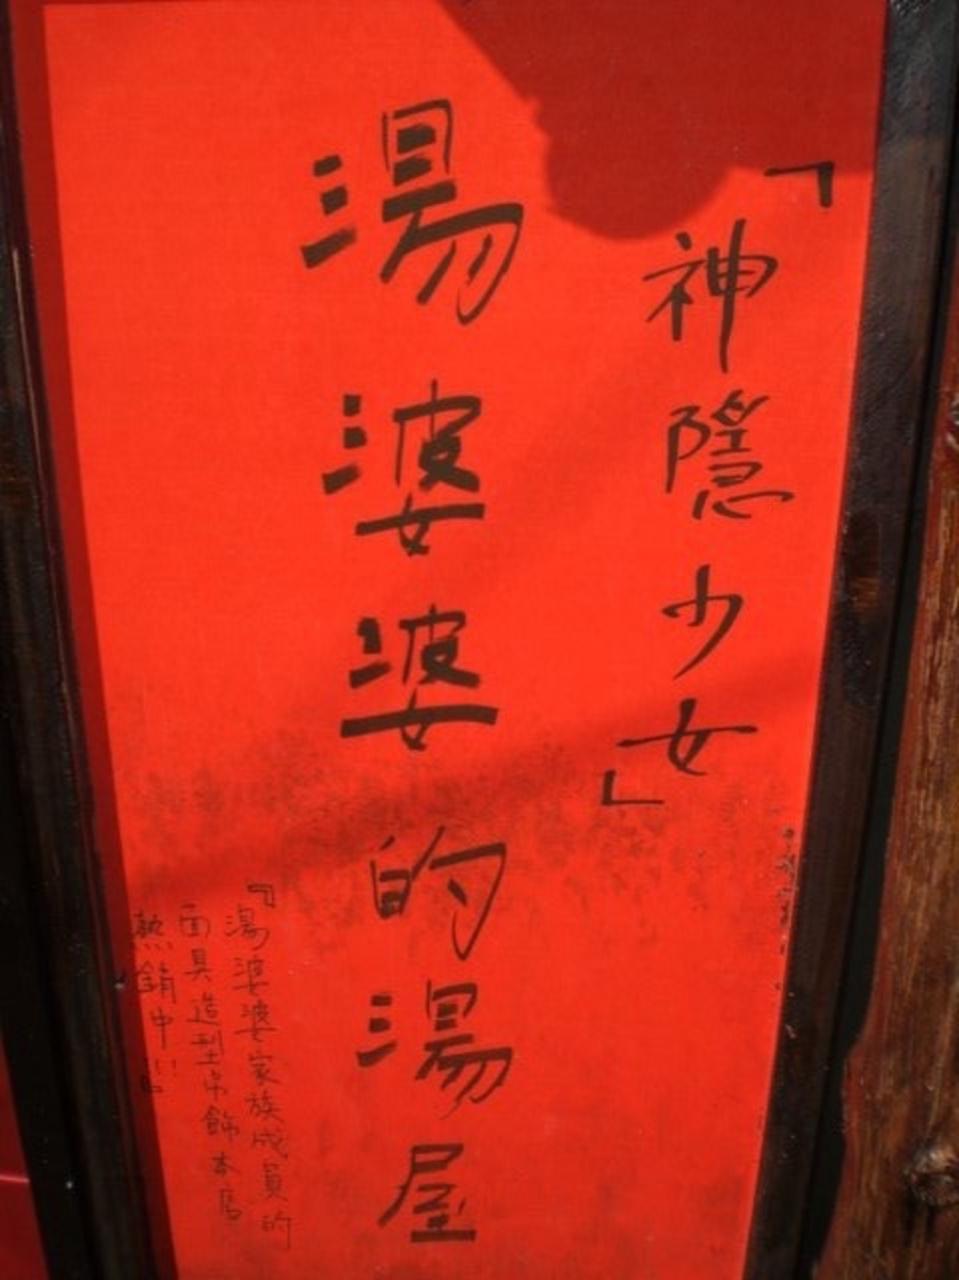 「神隱少女」
湯婆婆的湯屋
『湯婆婆家族成員的
面具造型吊飾本店
熱銷中!!』